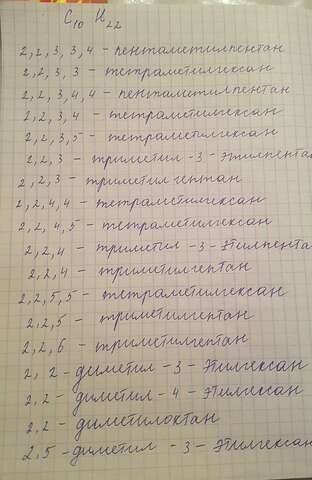 C10 H22
2,2,3,3,4 - пентаметилпентан
2,2,3,3 - тетраметилгексан
2,2,3,4,4 - пентаметилпентан
2,2,3,4 - тетраметилгексан
2,2,3,5 - тетраметилгексан
2,2,3 - триметил -3- этилпентан
2,2,3 - триметил гептан
2,2,4,4 - тетраметилгексан
2,2,4,5 - тетраметилгексан
2,2,4 - триметил -3- этилпента
2,2,4 - триметилгептан
2,2,5,5 - тетраметилгексан
2,2,5 - триметилгептан
2,2,6 - триметилгептан
2,2 - диметил -3- этилгексан
2,2 - диметил -4- этилгексан
2,2 - диметилоктан
2,5 - диметил -3- этилгексан